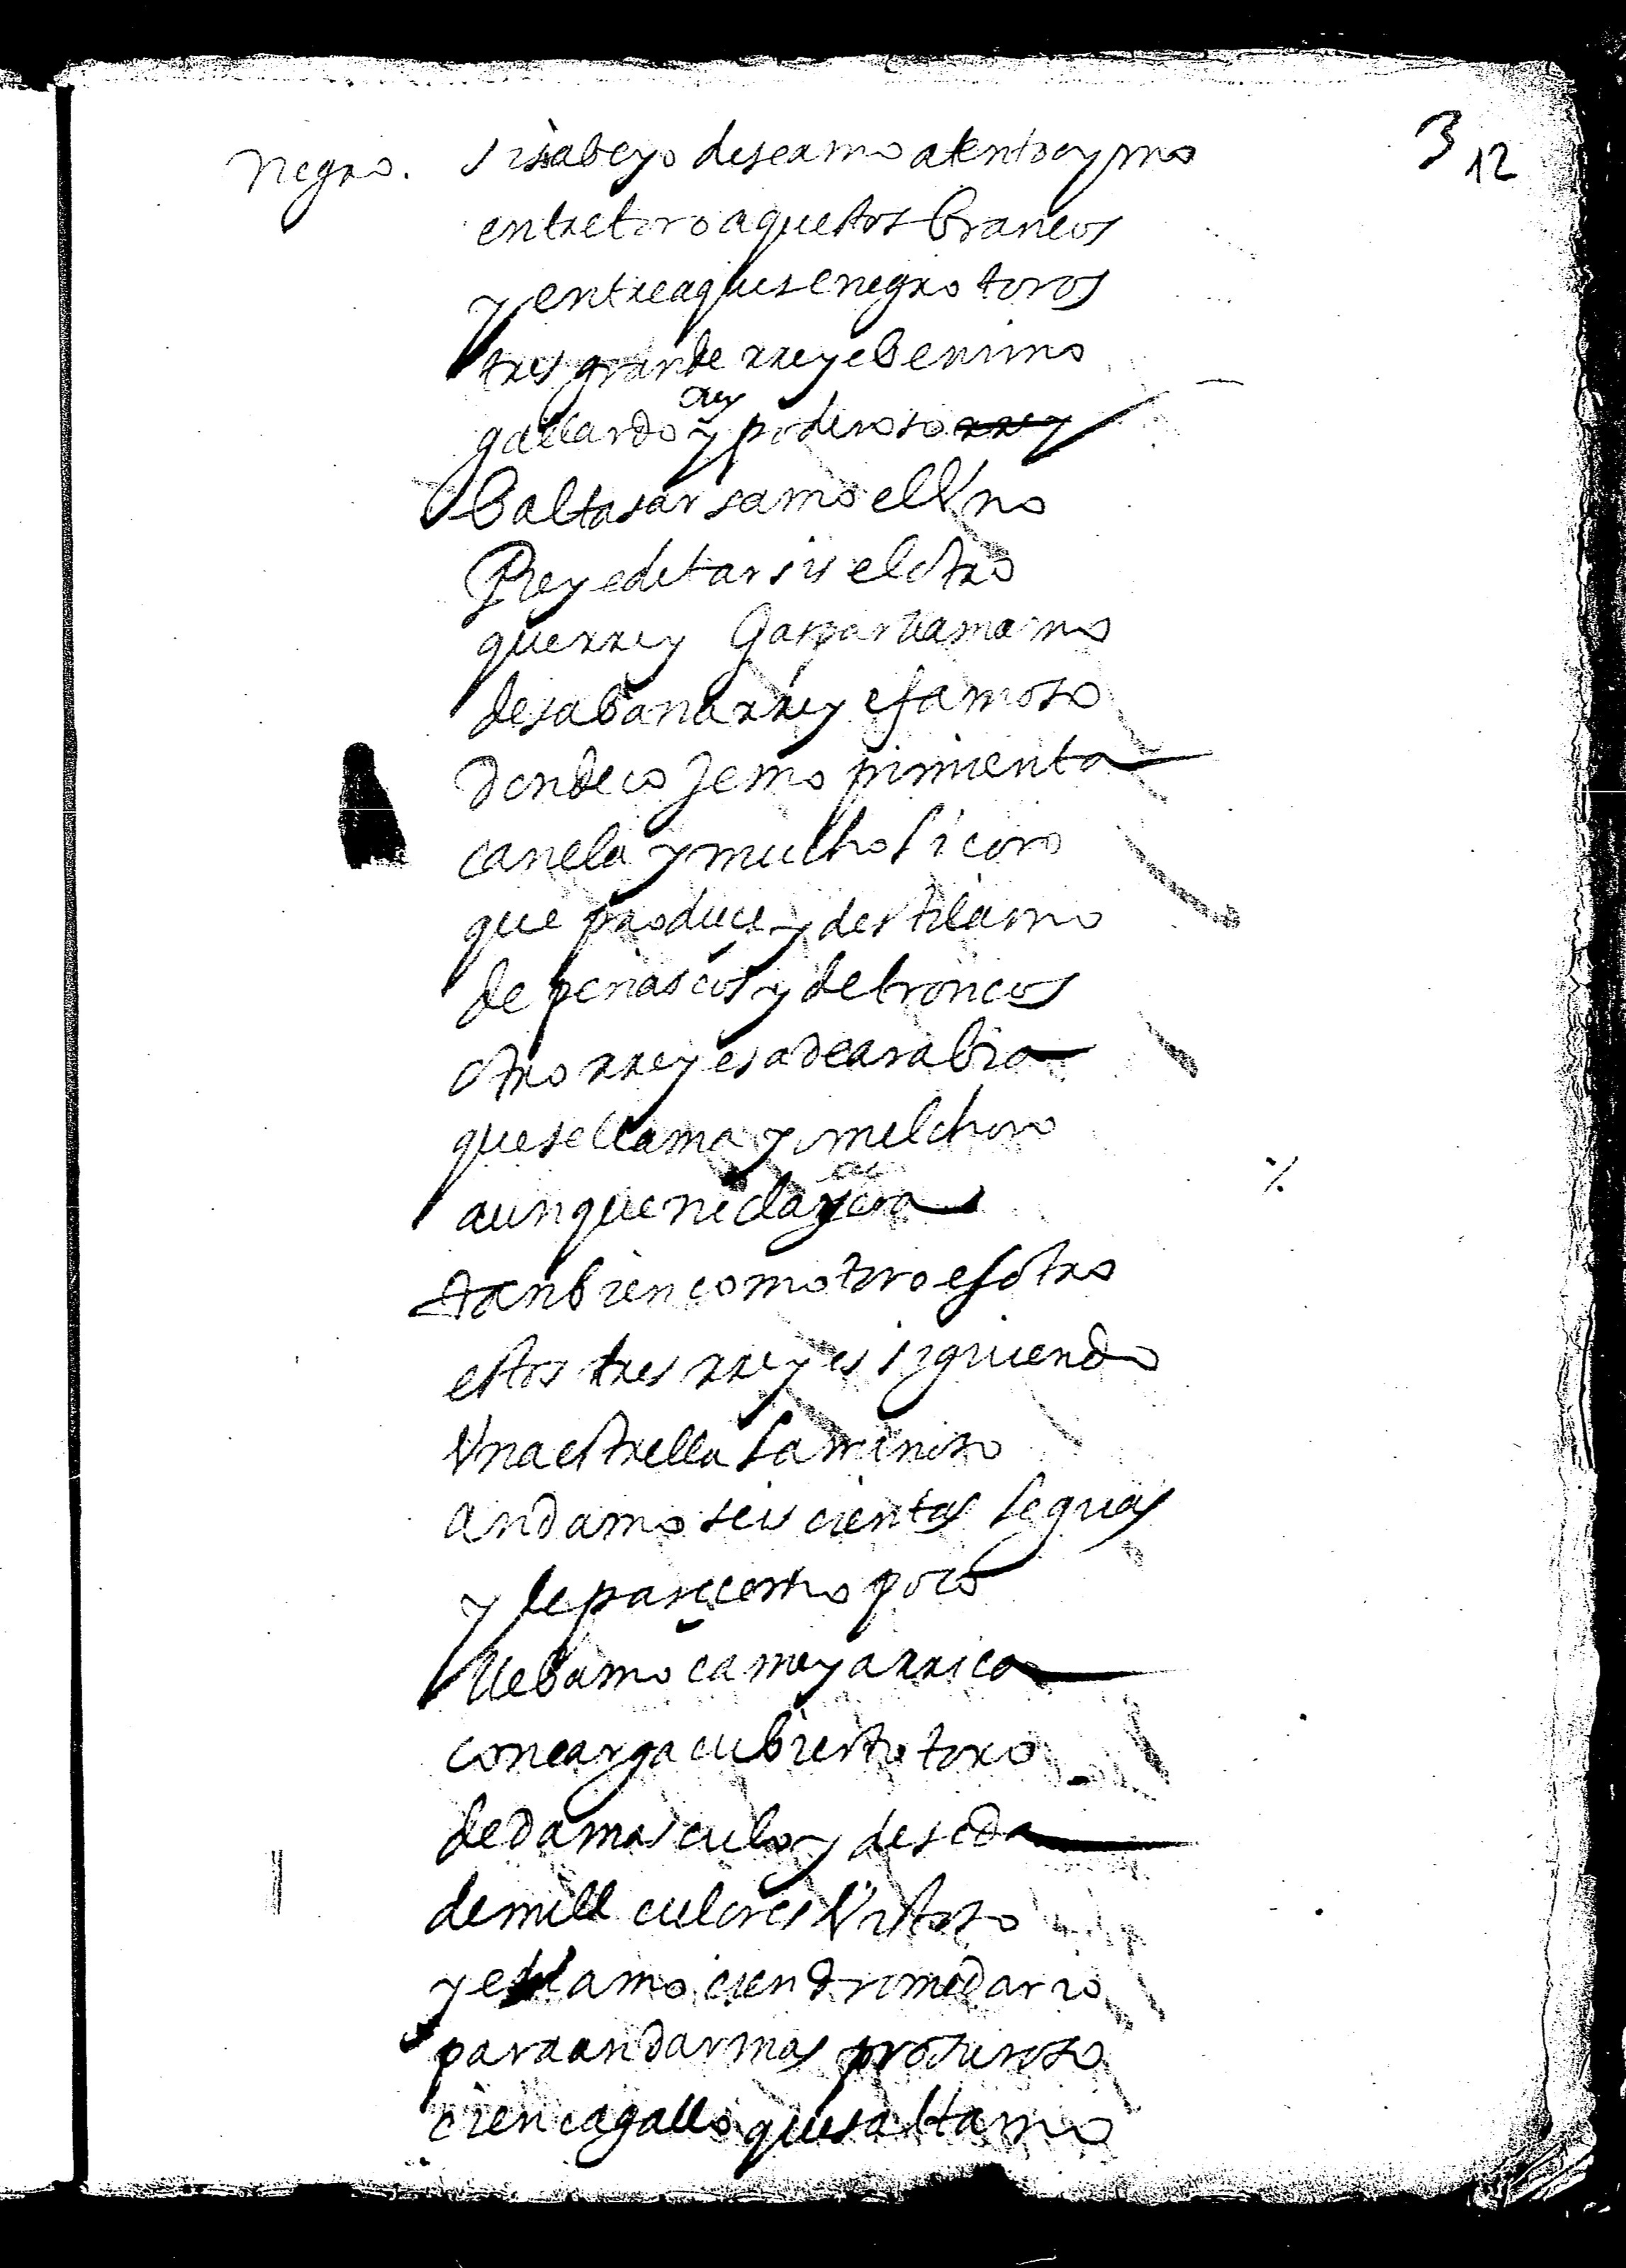 3 12
negro. si sabeyo deseamo atento oymo
entre toro aquestos brancos
y entre aquese negro toros
tres grande rreye benimo
gallardo rrey y poderoso rrey
Baltasar samo el Vno
Rey e de tarsis el otro
que rrey Gaspar llamamo
de saba na rrey e famoso
donde cojemo pimienta
canela y mucho licoro
que produce y destilamo
de penascos y de troncos
otro rrey esa de arabia
que se llama y melchoro
aunque ne cla y cara
tanbien como toro esotro
estos tres rreyes siguiendo
Vna estrella laminoso
andamo seis cientas leguas
y le parecemo poco
llebamo cameya rrica
con carga cubierto toro
de damasculo y de seda
de mill culores Vistoso
y ellamo cien dromedario
para andar mas prosuroso
cien cagallo que saltamo